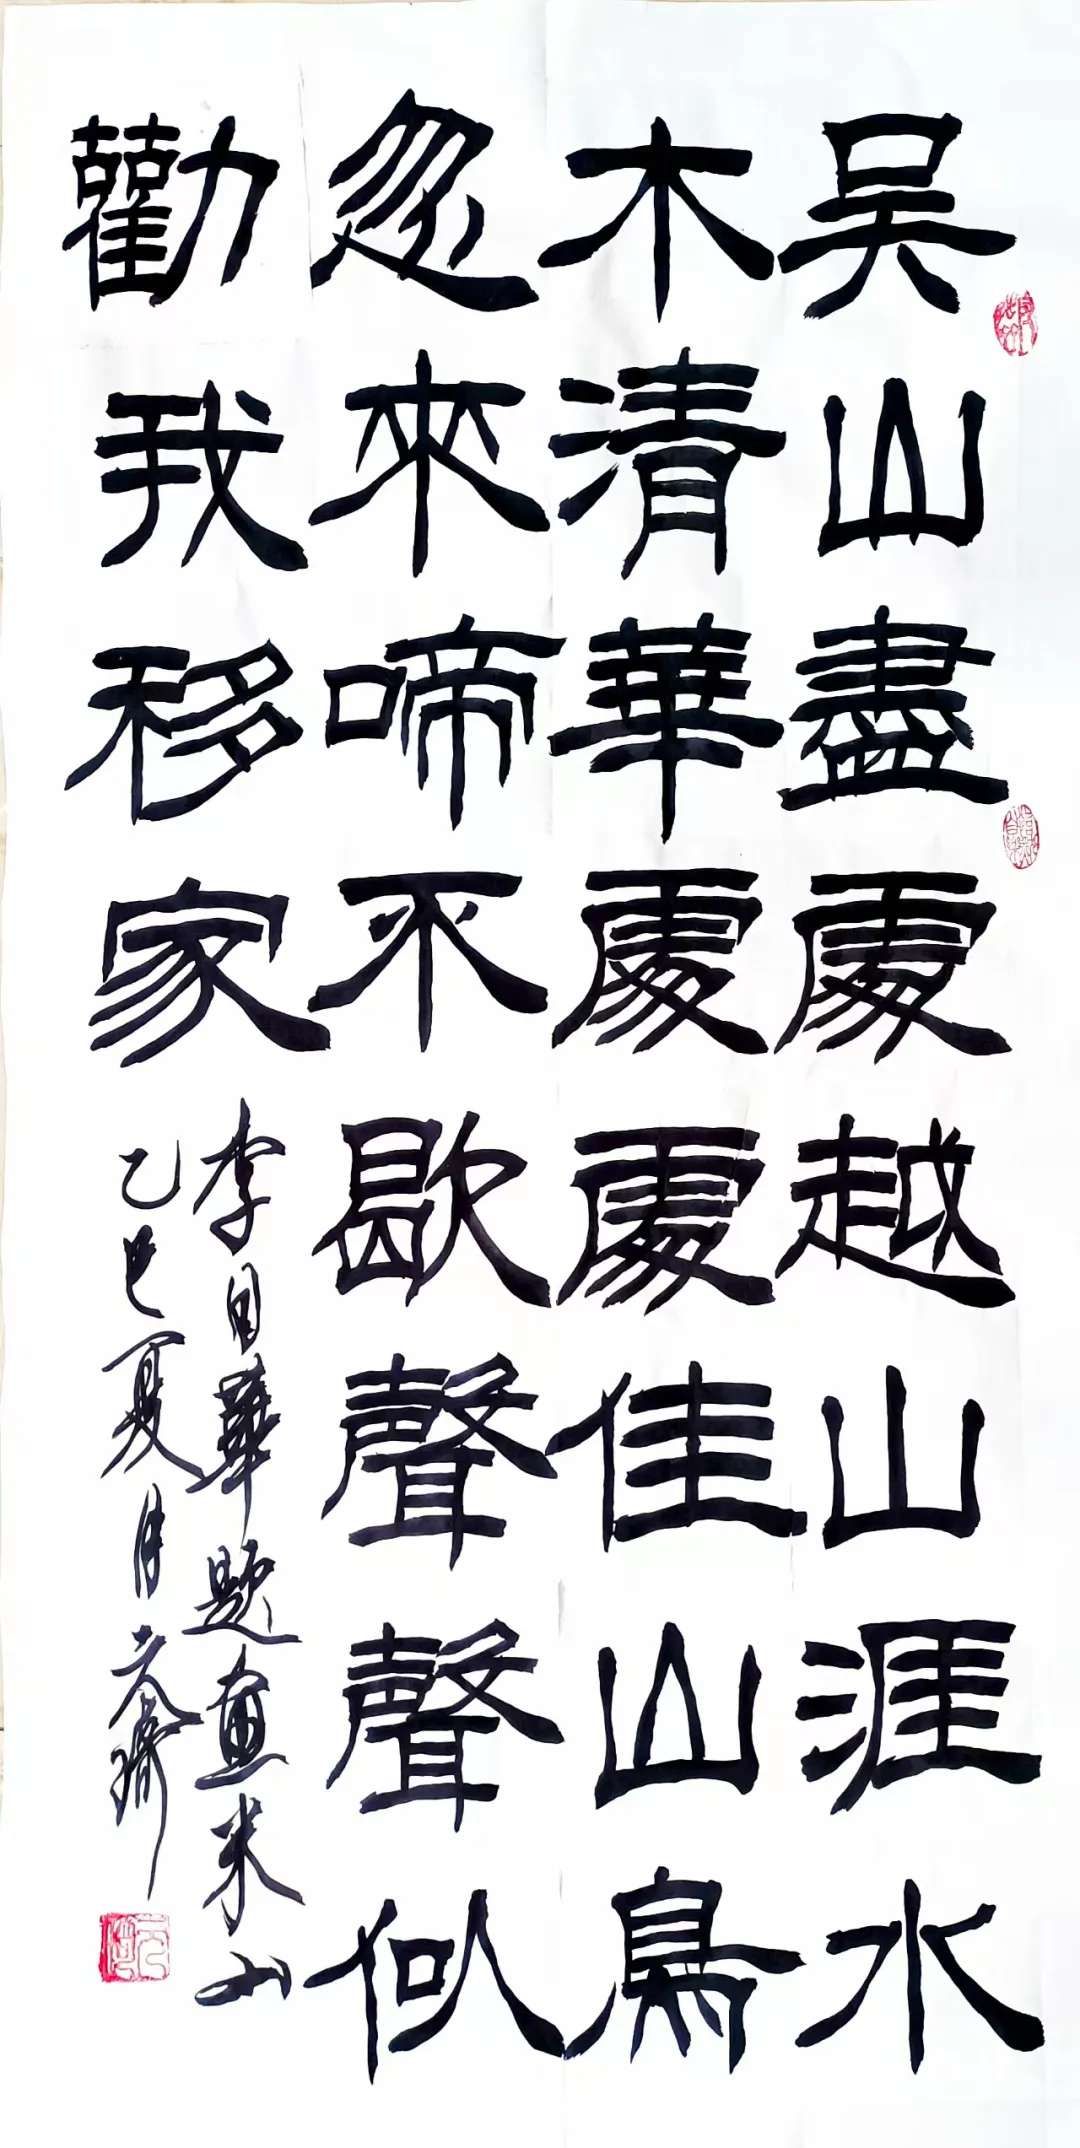 吴山盡處越山涯水
木清華處處佳山鳥
忽來啼不歇聲聲似
勸我移家
李日華題畫米山
乙巳夏月